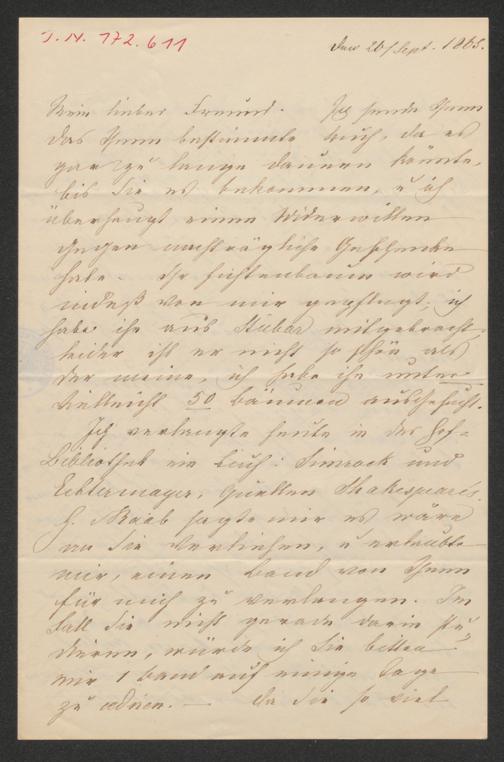 J. N. 172.611
den 20/Sept. 1865.
Mein lieber Freund. Ich sende Ihnen
das Ihnen bestimmte Buch, da es
gar zu lange dauern könnte,
bis Sie es bekommen, u ich
überhaupt einen Widerwillen
gegen nachträgliche Geschenke
habe. Ihr Fichtenbaum wird
indeß von mir gepflegt; ich
habe ihn aus mitgebracht,
leider ist er nicht so schön als
der meine, ich habe ihn unter
vielleicht 50 Bäumen ausgesucht.
Ich verlangte heute in der Hof-
Bibliothek ein Buch: Simrock und
Echtermayer, Quellen Shakespeares.
H. Raab sagte mir es wäre
an Sie verliehen, u erlaubte
mir, einen Band von Ihnen
für mich zu verlangen. Im
Fall Sie nicht gerade darin stu-
dieren, würde ich Sie bitten
mir 1 Band auf einige Tage
zu . — Da Sie so viel